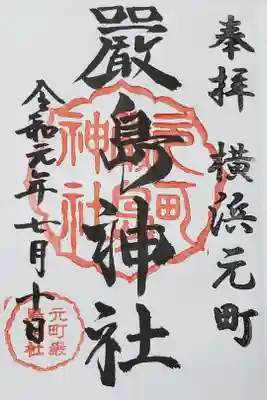 奉拝 横浜元町
嚴島神社
令和元年七月十日
元町嚴島神社
元町嚴島神社